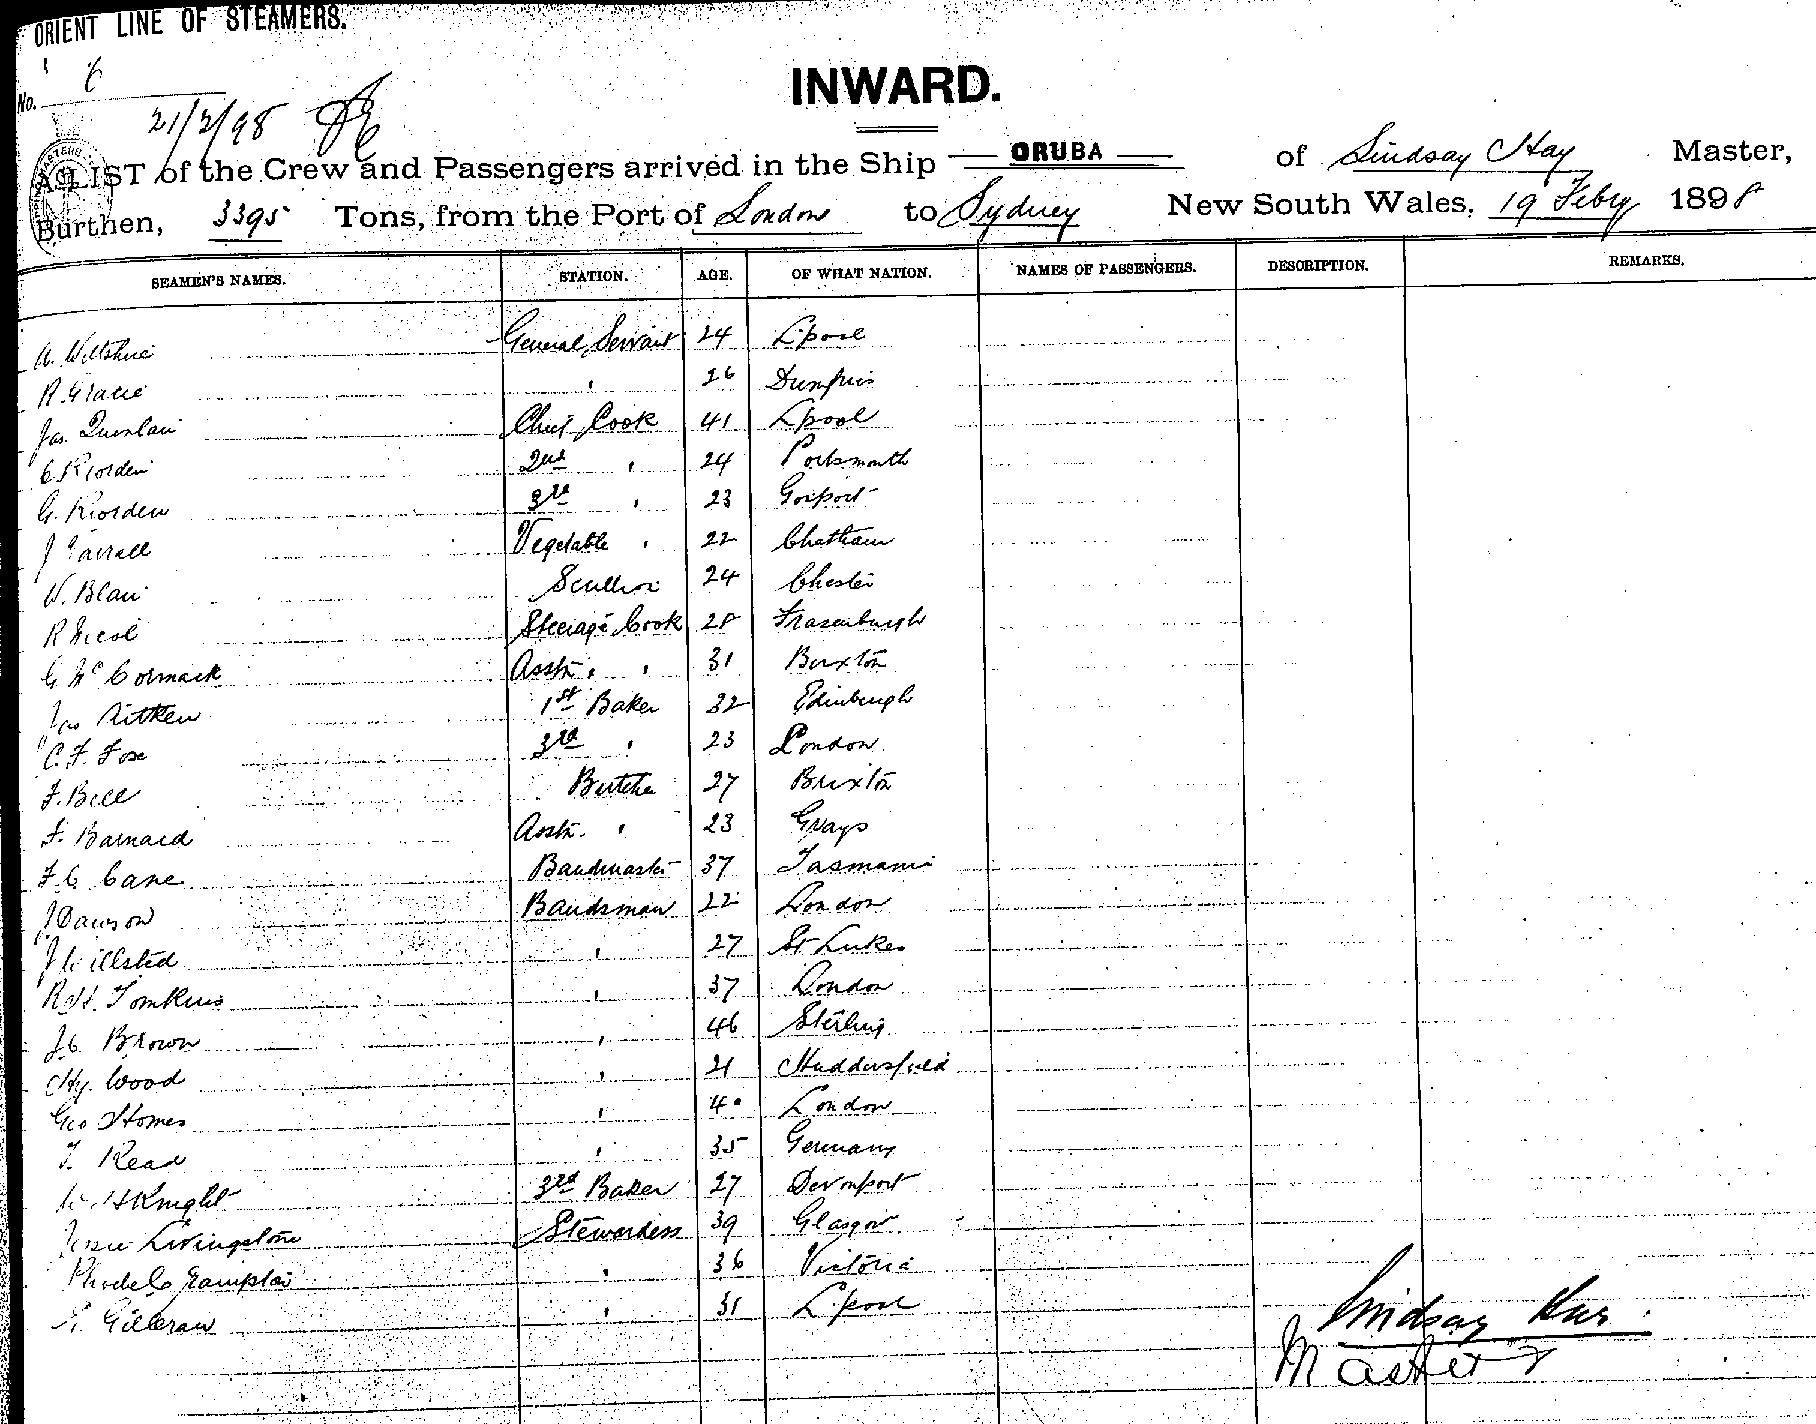 ORIENT LINE OF STEAMERS.
No. 6
21/2/98
INWARD.
A LIST of the Crew and Passengers arrived in the Ship ORUBA of Lindsay Hay Master,
Burthen, 3395 Tons, from the Port of London to Sydney New South Wales, 19 Febry 1898
SEAMEN'S NAMES. STATION. AGE. OF WHAT NATION. NAMES OF PASSENGERS. DESCRIPTION. REMARKS.
A. Wiltshire General Servant 24 L'pool
R. Gracie " 26 Dumfries
Jas. Quinlan Chief Cook 41 L'pool
C Riorden 2nd " 24 Portsmouth
G. Riorden 3rd " 23 Gosport
J Farrall Vegetable " 22 Chatham
W. Blair Scullion 24 Chester
R Nicol Steerage Cook 28 Fraserburgh
G McCormack Asstn. " " 31 Buxton
Jas Aitken 1st Baker 32 Edinburgh
C. F. Fox 3rd " 23 London
F. Bell Butcher 27 Brixton
F. Barnard Asstn. " 23 Grays
F C Cane Bandmaster 37 Tasmania
J Dawson Bandsman 22 London
J Willsted " 27 St Lukes
R. H. Tomkins " 37 London
J C Brown " 46 Sterling
Hy. Wood " 21 Huddersfield
Geo Homes " 40 London
T. Read " 35 Germany
W H Knight 3rd Baker 27 Devonport
Jessie Livingstone Stewardess 39 Glasgow
" 36 Victoria
E. Gilleran " 31 L'pool
Lindsay Hay
Master